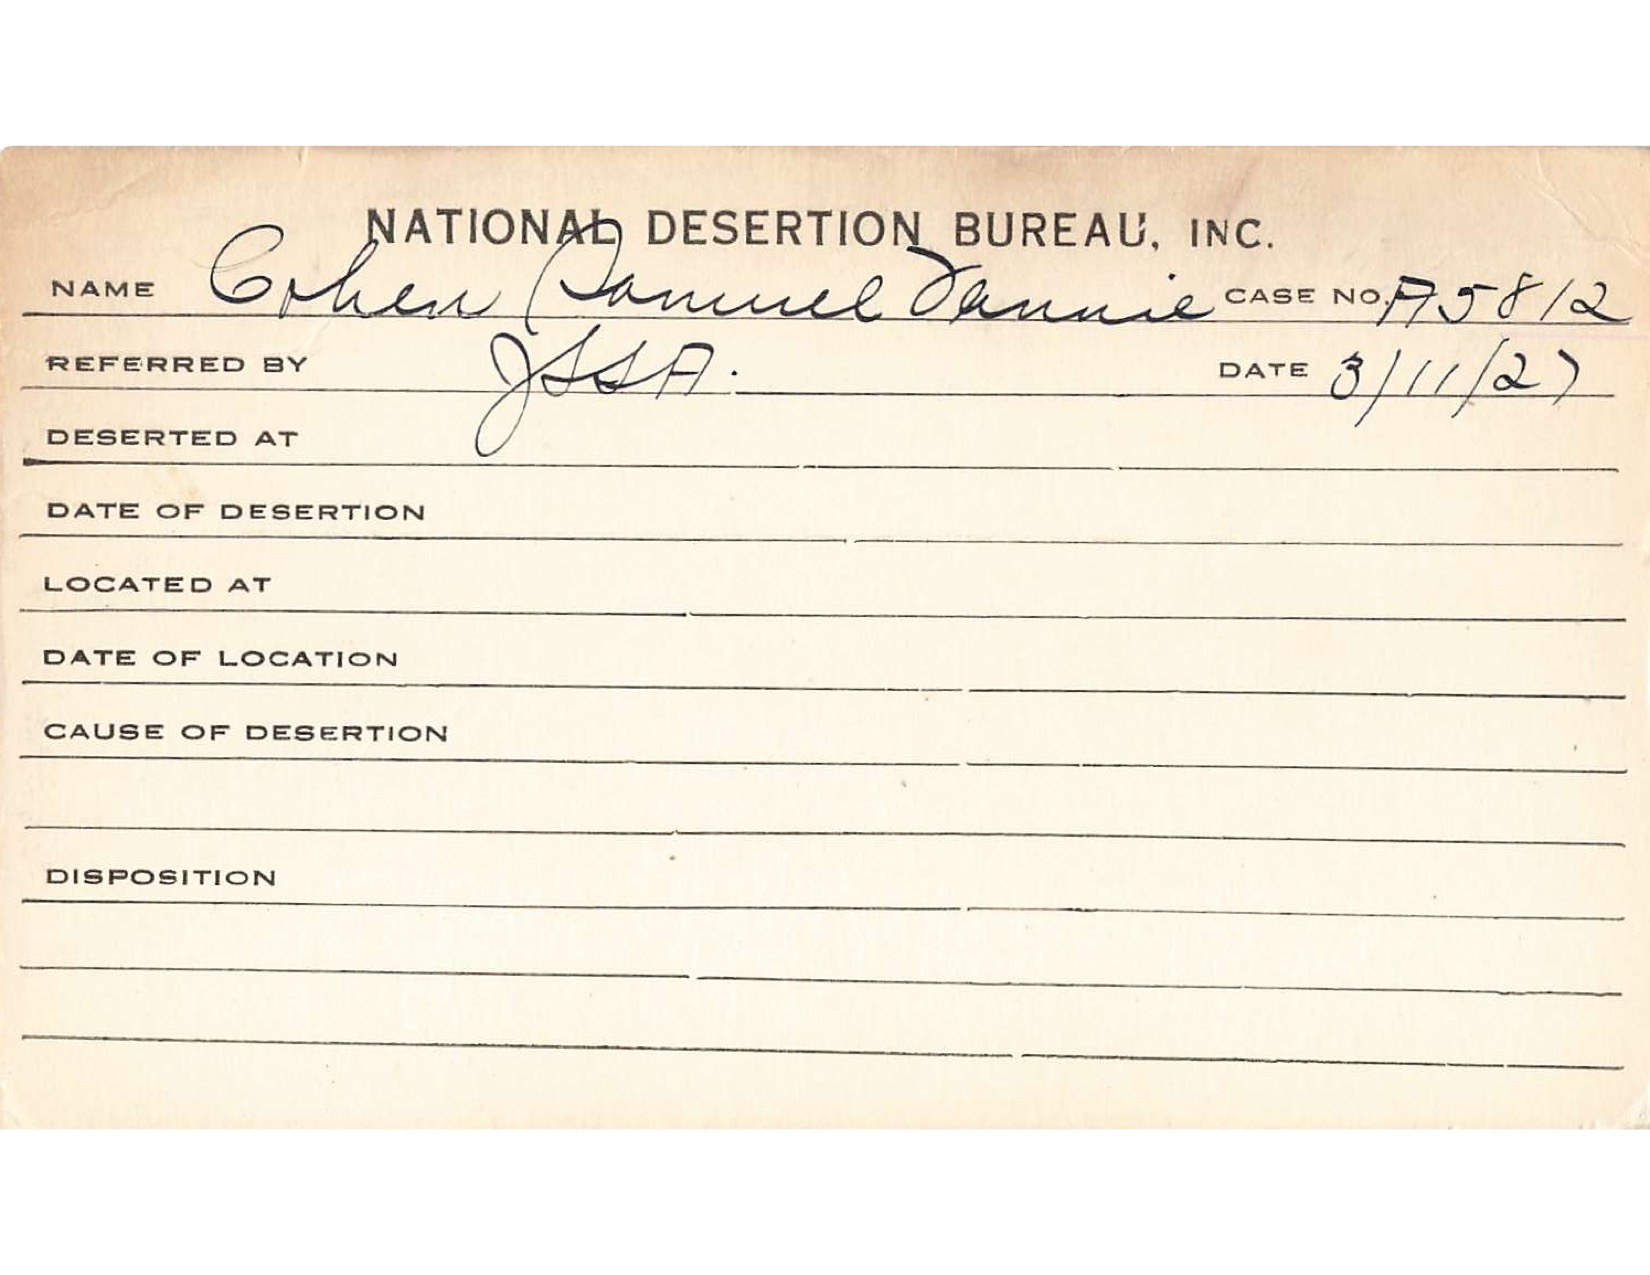 NATIONAL DESERTION BUREAU, INC.
NAME Cohen Samuel Fannie CASE NO. A5812
REFERRED BY JSSA. DATE 3/11/27
DESERTED AT
DATE OF DESERTION
LOCATED AT
DATE OF LOCATION
CAUSE OF DESERTION
DISPOSITION